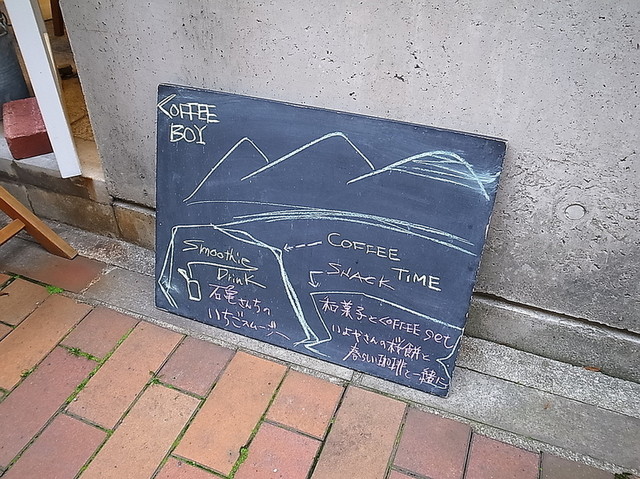 COFFEE
BOY
COFFEE
TIME
Smoothie
Drink
石亀さんちの
いちごスムージー
SNACK
和菓子とCOFFEE set
いよやさんの桜餅と
春らしい珈琲と一緒に